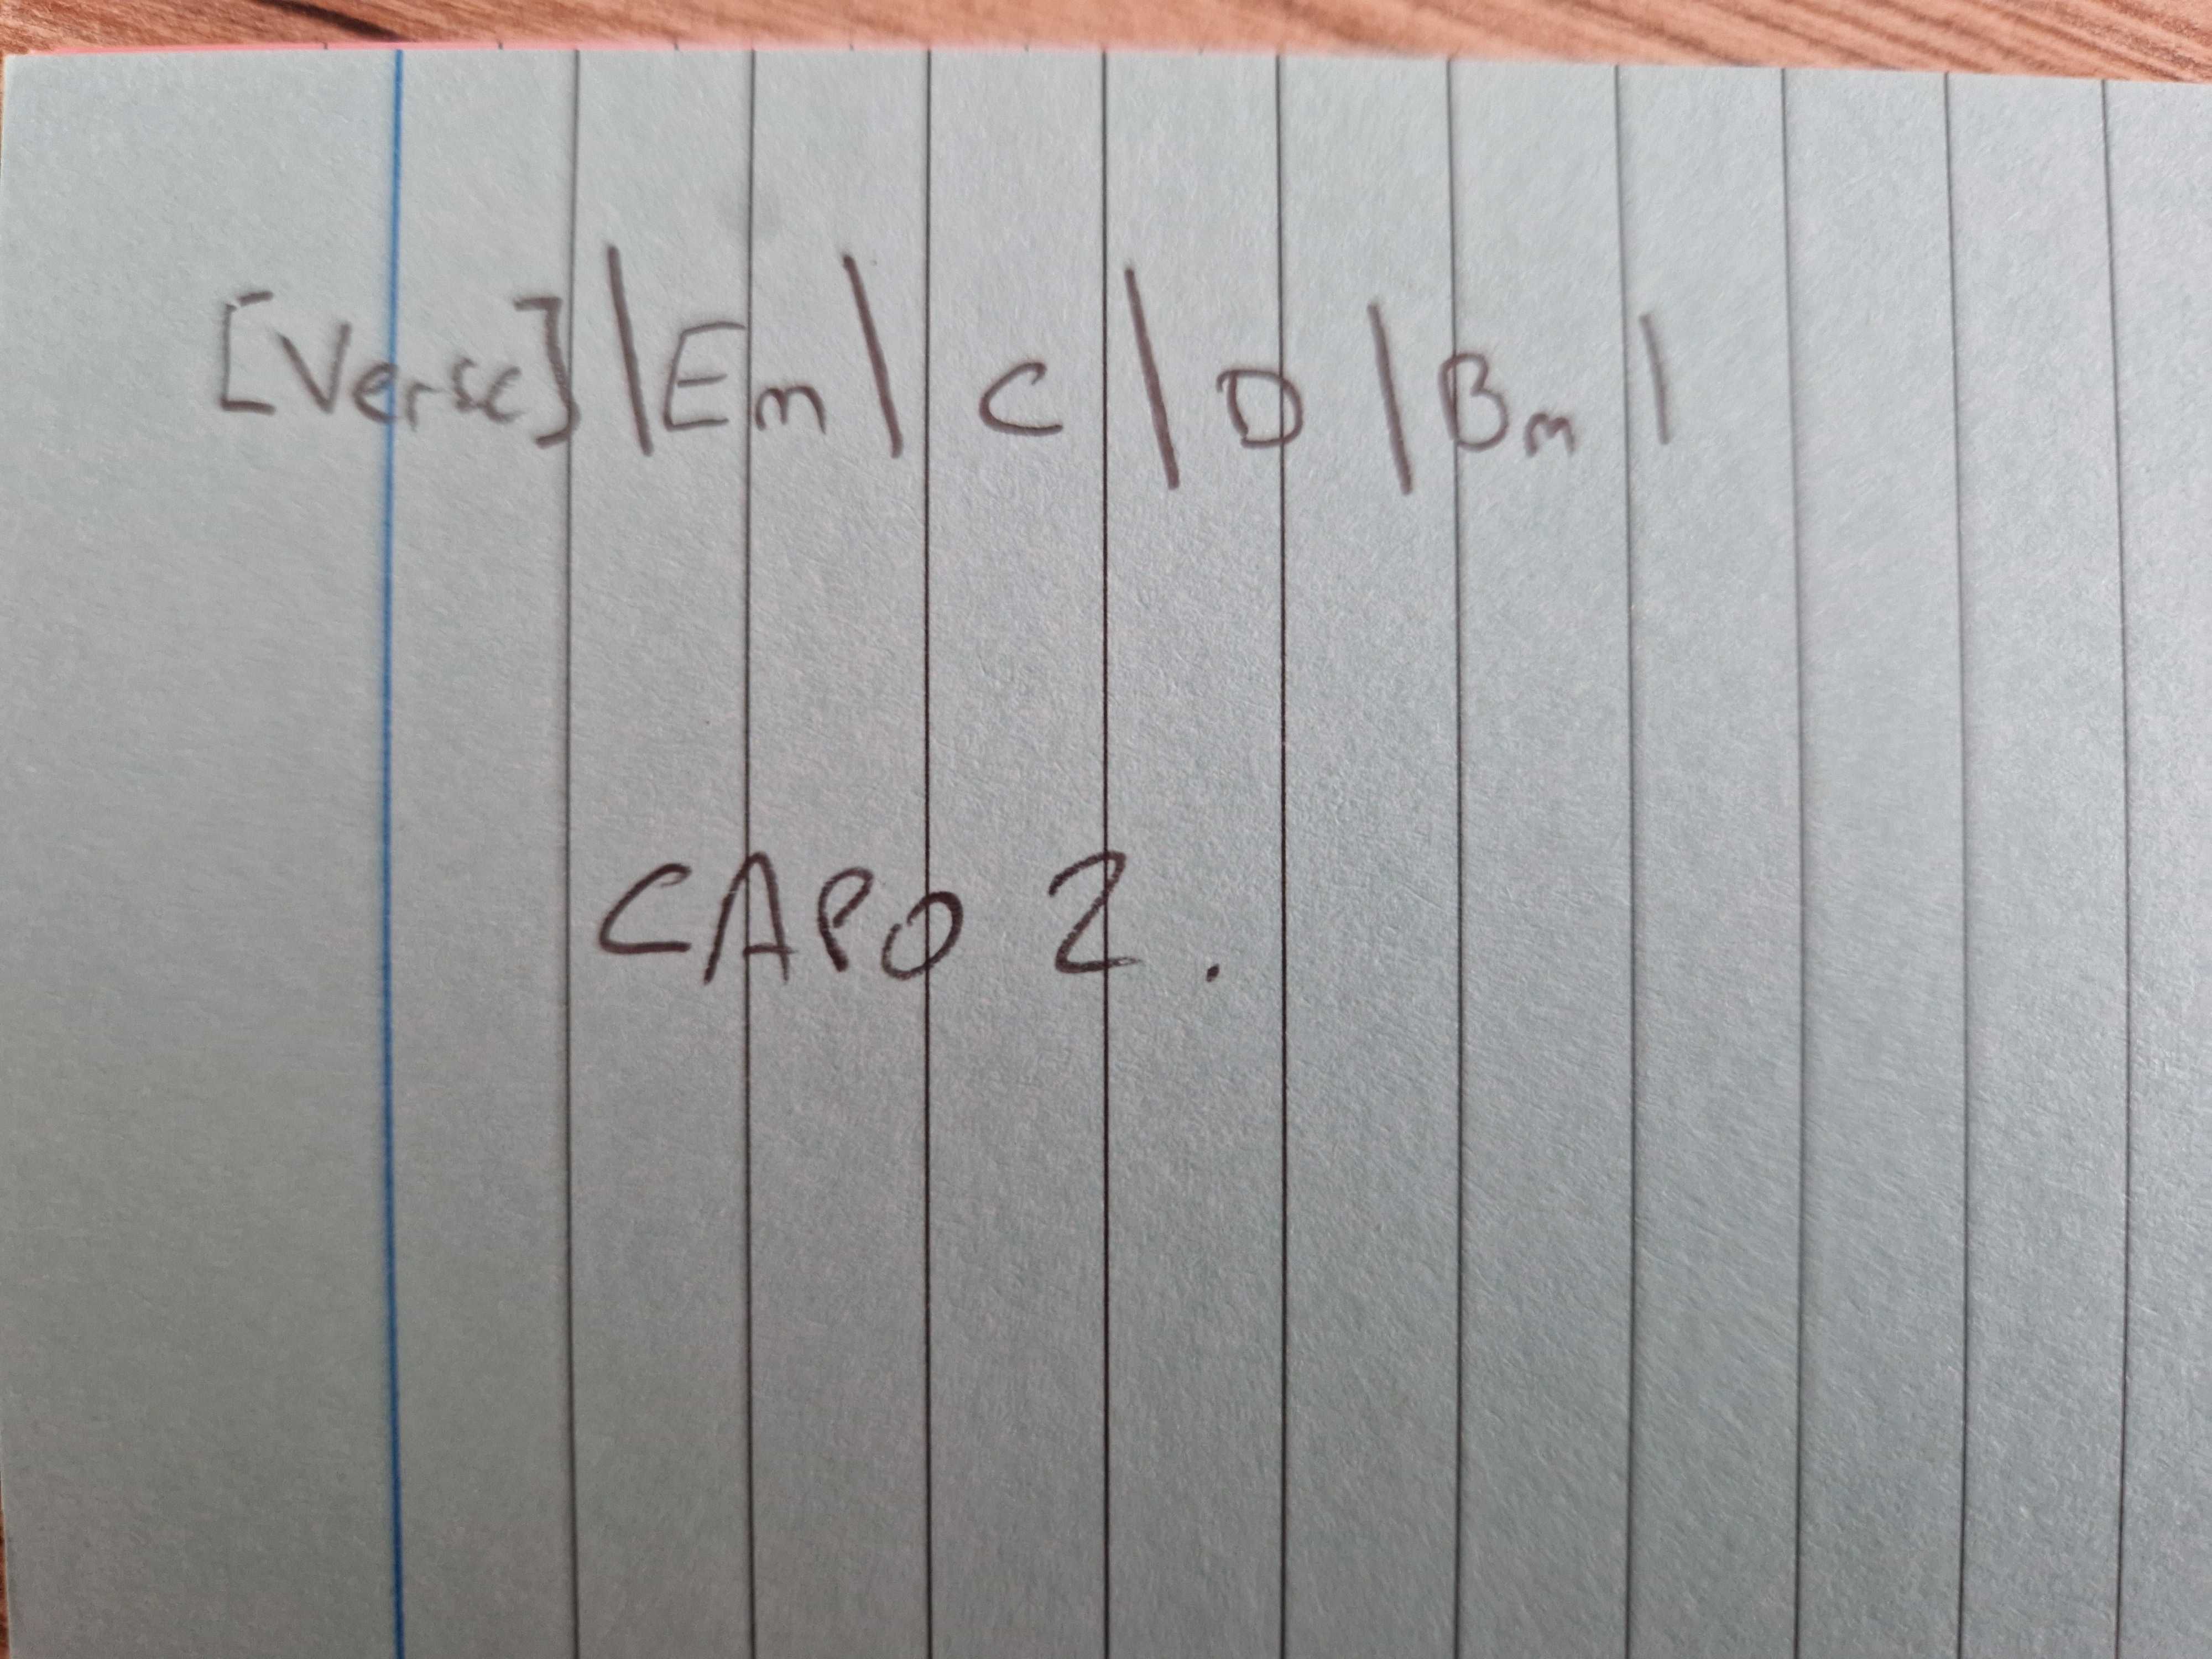 [Verse] | Em | C | D | Bm |
CAPO 2.